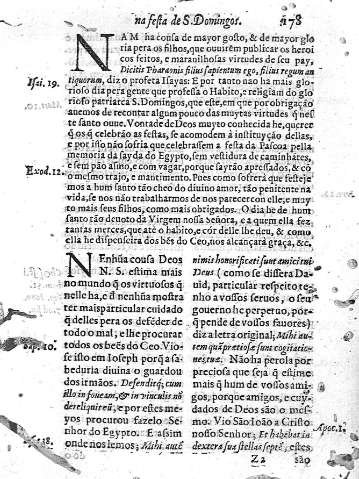 na festa de S. Domingos. 178
NAM ha cousa de mayor gosto, & de mayor glo
ria pera os filhos, que ouuirem publicar os heroi
cos feitos, e marauilhosas virtudes de seu pay,
Dicitis Pharaonis filius sapientum ego, filius regum an
Isai. 19.
tiquorum, diz o profeta Isayas: E por tanto não ha mais glo
rioso dia pera gente que professa o Habito, e religiam do glo
rioso patriarca S. Domingos, que este, em que por obrigação
auemos de recontar algum pouco das muytas virtudes q̃ nes
te santo ouue. Vontade de Deos muyto conhecida he, querer
q̃ os q̃ celebrão as festas, se acomodem à instituyção dellas,
e por isso não sofria que celebrassem a festa da Pascoa pella
memoria da sayda do Egypto, sem vestidura de caminhâtes,
Exod. 12.
e sem pão asmo, e com vagar, porque sayrão apressados, & cõ
o mesmo trajo, e mantimento. Pues como sofrerá que festeje
mos a hum santo tão cheo do diuino amor, tão penitente na
vida, se nos não trabalharmos de nos parecer con elle, e muy
to mais seus filhos, como mais obrigados. O dia he de hum
santo tão deuoto da Virgem nossa señora, e a quem ella fez
tantas merces, que até o habito, e côr delle lhe deu, & como
ella he dispenseira dos bẽs do Ceo, nos alcançará graça, &c.
NEnhũa cousa Deos
N. S. estima mais
no mundo q̃ os virtuosos q̃
nelle ha, e d'nenhũa mostra
ter mais particular cuidado
q̃ delles pera os defẽder de
todo o mal; e lhe procurar
todos os beẽs do Ceo. Vio
se isso em Ioseph porq̃ a sa
Sap. 10.
beduria diuina o guardou
dos irmãos. Defenditq; cum
illo in foueam, & in vinculis nõ
dereliquit, e por estes me-
yos procurou fazelo Se-
nhor do Egypto. E assim
onde nos lemos; Mihi autẽ
138.
nimis honorificati sunt amici tui
Deus (como se dissera Da-
uid, particular respeito te-
nho a vossos seruos, o seu
gouerno he perpetuo, por-
q̃ pende de vossos fauores)
diz a letra original; Mihi au
rem quã pretiosæ sunt cogitatio
nes tuæ. Não ha perola por
preciosa que seja q̃ estime
mais q̃ hum de vossos ami-
gos, porque amigos, e cuy-
dados de Deos são o mes-
mo. Vio São Ioão a Cristo
nosso Senhor; Et habebat in
Apoc. 1.
dextera sua stellas septẽ, estes
Z 2 são